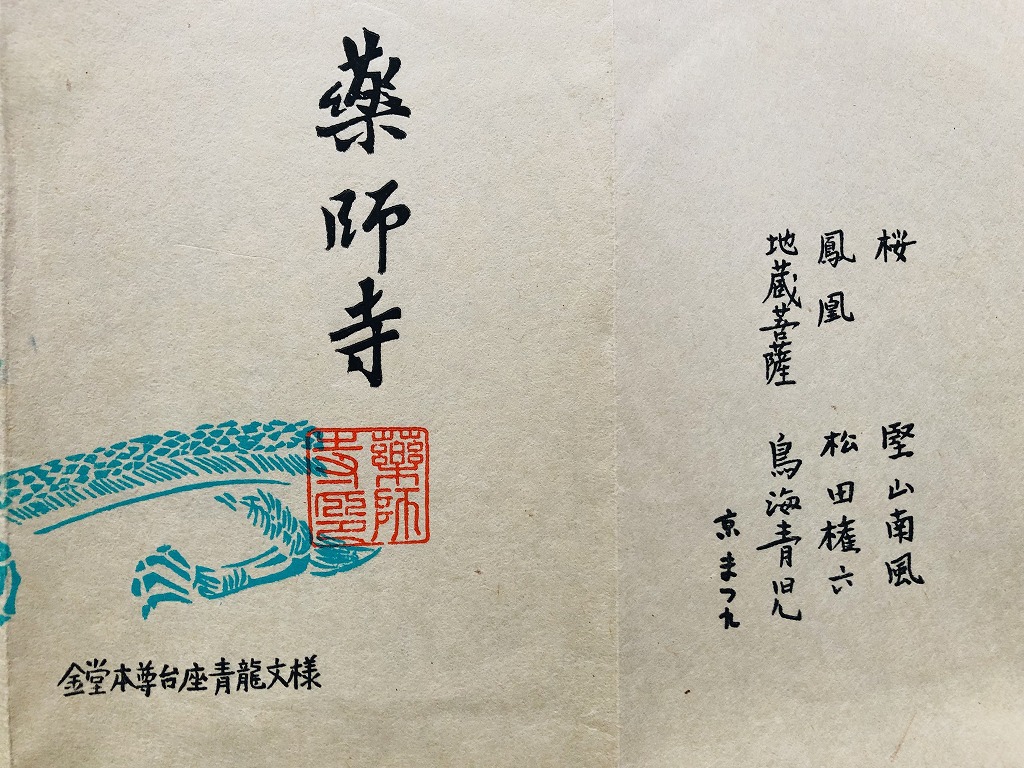 桜 堅山南風
鳳凰 松田権六
地蔵菩薩 鳥海青児
京 まつ九
藥師寺
藥師
寺璽
金堂本尊台座青龍文様